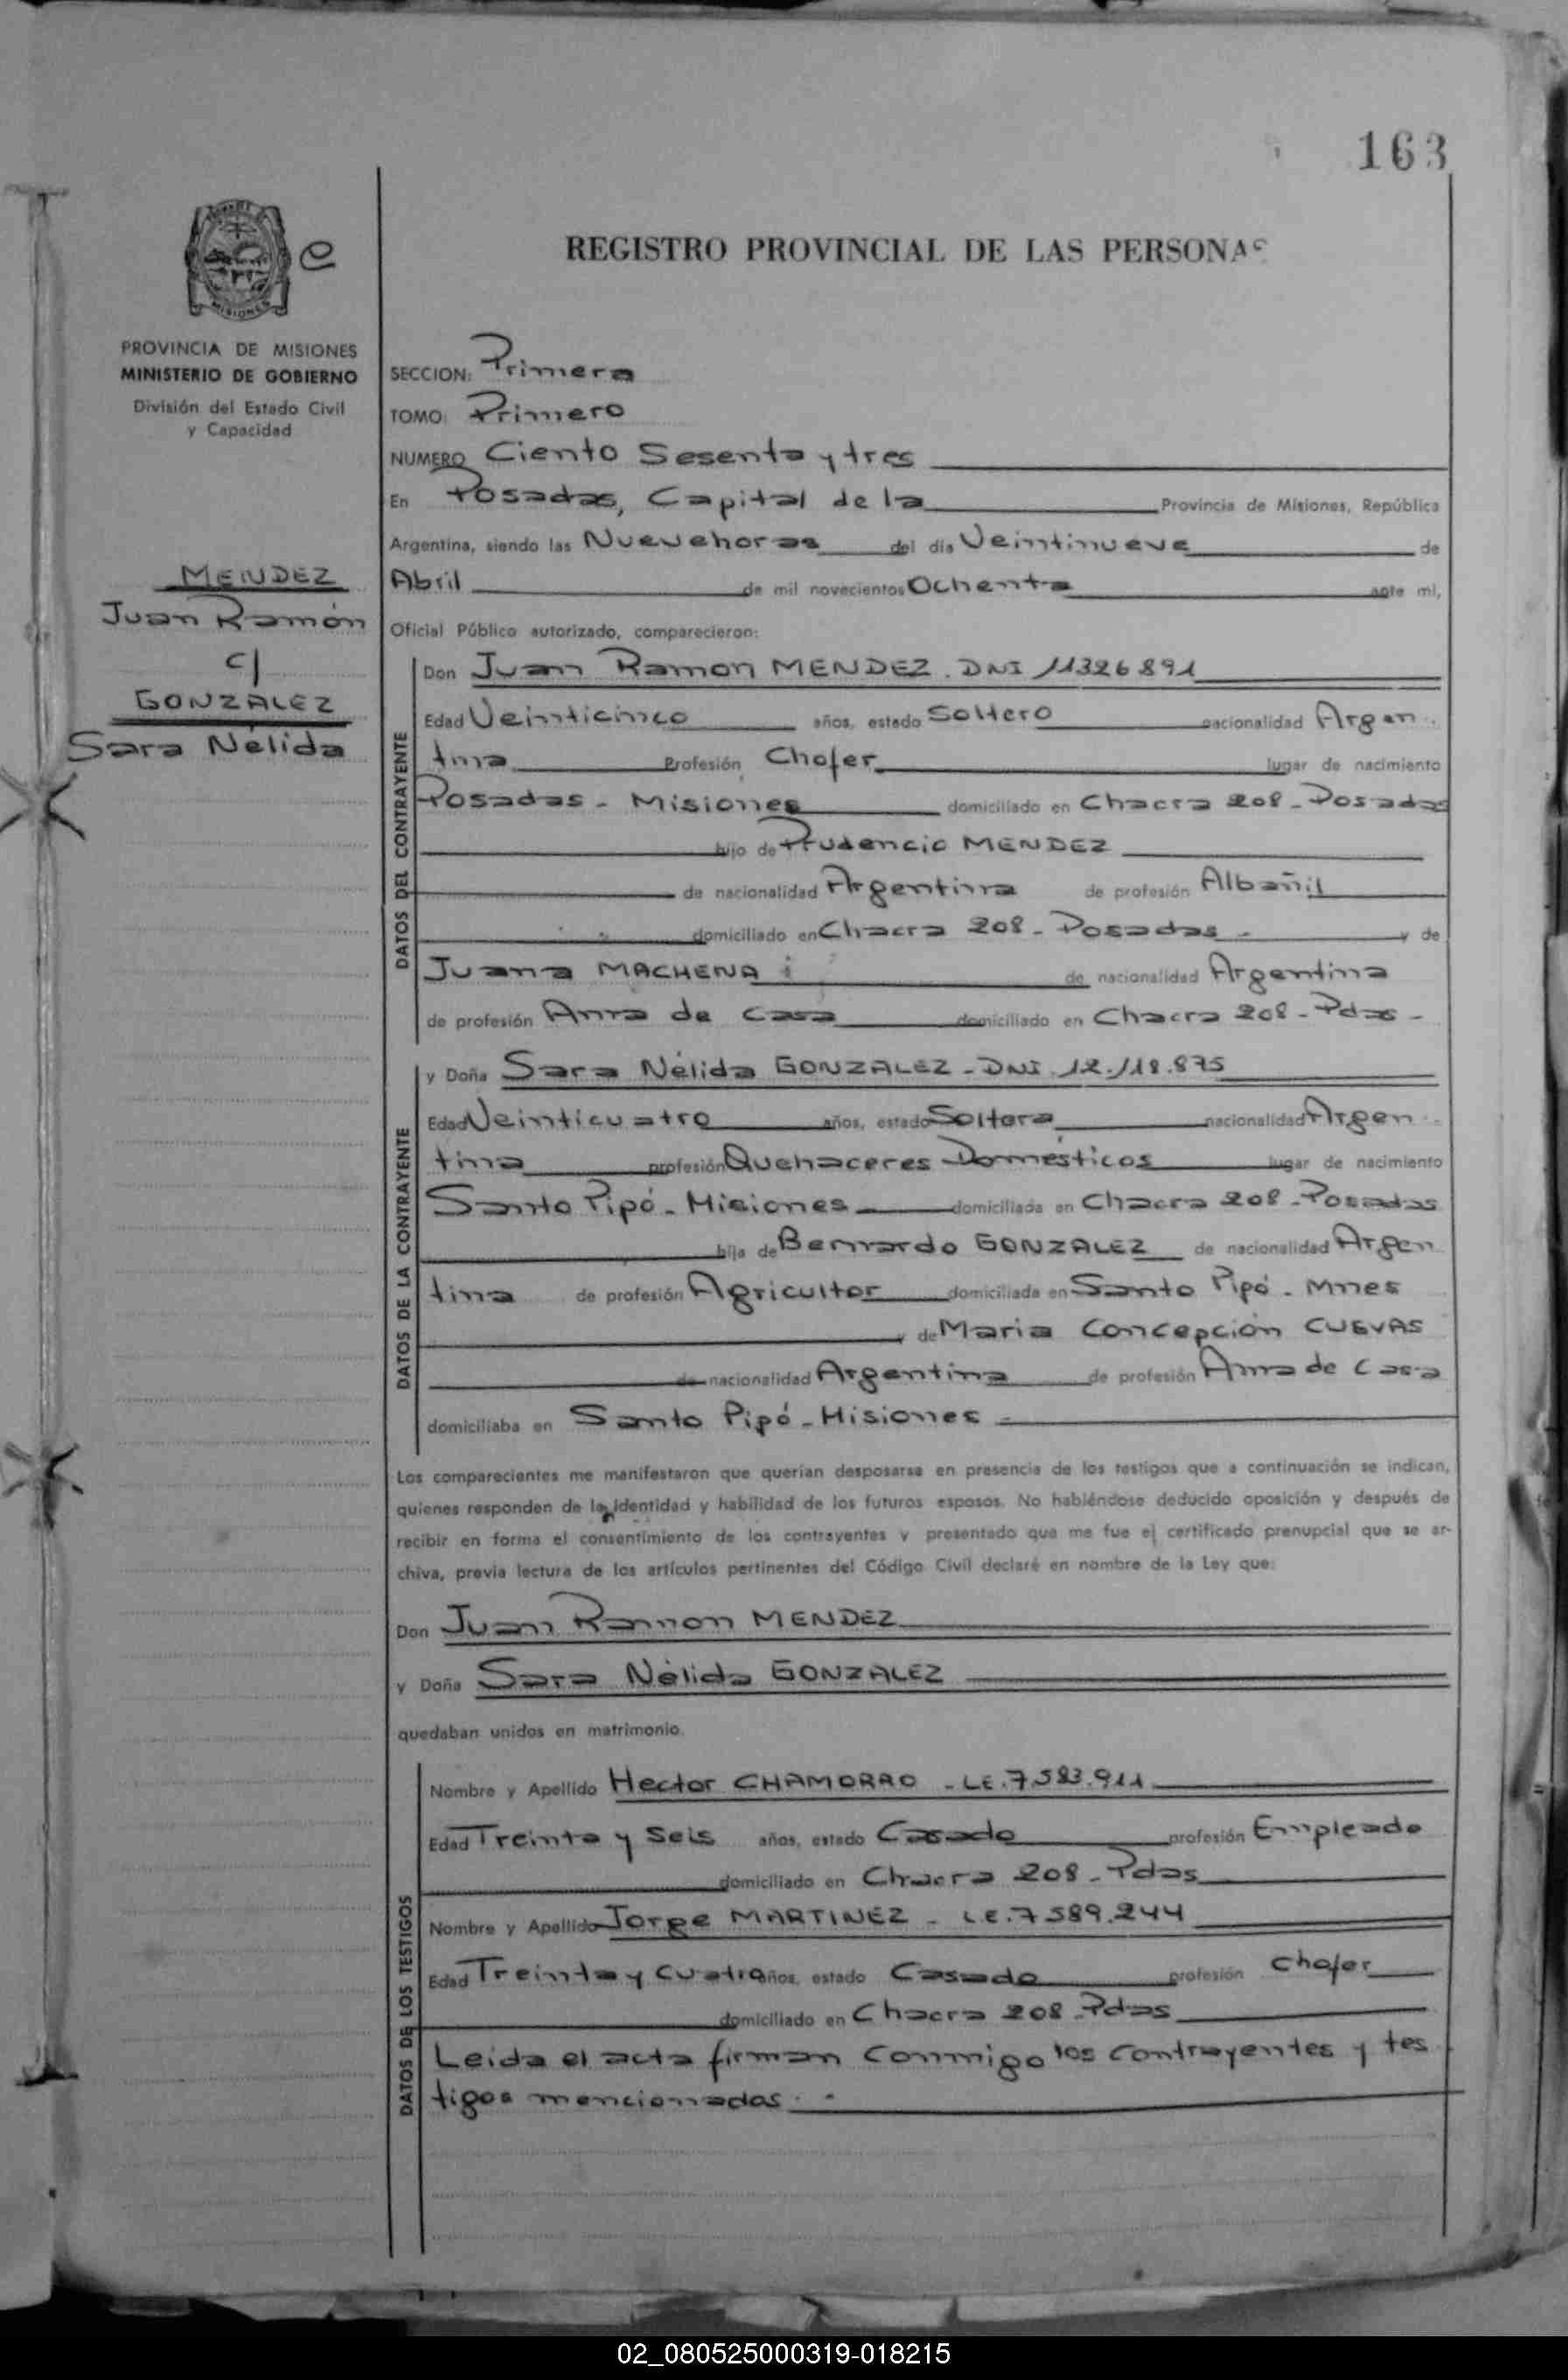 163
REGISTRO PROVINCIAL DE LAS PERSONAS
MISIONES
PROVINCIA DE MISIONES
MINISTERIO DE GOBIERNO
División del Estado Civil
y Capacidad
MENDEZ
Juan Ramón
c/
GONZALEZ
Sara Nélida
SECCION: Primera
TOMO: Primero
NUMERO Ciento Sesenta y tres
En Posadas, Capital de la Provincia de Misiones, República
Argentina, siendo las Nueve horas del día Veintinueve de
Abril de mil novecientos Ochenta ante mí,
Oficial Público autorizado, comparecieron:
DATOS DEL CONTRAYENTE
Don Juan Ramon MENDEZ. DNI 11326891
Edad Veinticinco años, estado Soltero nacionalidad Argen
tina Profesión Chofer lugar de nacimiento
Posadas - Misiones domiciliado en Chacra 208 - Posadas
hijo de Prudencio MENDEZ
de nacionalidad Argentina de profesión Albañil
domiciliado en Chacra 208 - Posadas - y de
Juana MACHENA de nacionalidad Argentina
de profesión Ama de Casa domiciliado en Chacra 208 - Pdas -
DATOS DE LA CONTRAYENTE
y Doña Sara Nélida GONZALEZ - DNI. 12.118.875
Edad Veinticuatro años, estado Soltera nacionalidad Argen
tina profesión Quehaceres Domésticos lugar de nacimiento
Santo Pipó - Misiones domiciliada en Chacra 208 - Posadas
hija de Bernardo GONZALEZ de nacionalidad Argen
tina de profesión Agricultor domiciliada en Santo Pipó - Mnes
y de Maria Concepción CUEVAS
de nacionalidad Argentina de profesión Ama de Casa
domiciliaba en Santo Pipó - Misiones -
Los comparecientes me manifestaron que querían desposarse en presencia de los testigos que a continuación se indican,
quienes responden de la identidad y habilidad de los futuros esposos. No habiéndose deducido oposición y después de
recibir en forma el consentimiento de los contrayentes y presentado que me fue el certificado prenupcial que se ar-
chiva, previa lectura de los artículos pertinentes del Código Civil declaré en nombre de la Ley que:
Don Juan Ramon MENDEZ
y Doña Sara Nélida GONZALEZ
quedaban unidos en matrimonio.
DATOS DE LOS TESTIGOS
Nombre y Apellido Hector CHAMORRO - LE. 7.583.911
Edad Treinta y Seis años, estado Casado profesión Empleado
domiciliado en Chacra 208 - Pdas
Nombre y Apellido Jorge MARTINEZ - LE. 7589.244
Edad Treinta y Cuatro años, estado Casado profesión Chofer
domiciliado en Chacra 208 - Pdas
Leida el acta firman conmigo los contrayentes y tes
tigos mencionados. -
02_080525000319-018215